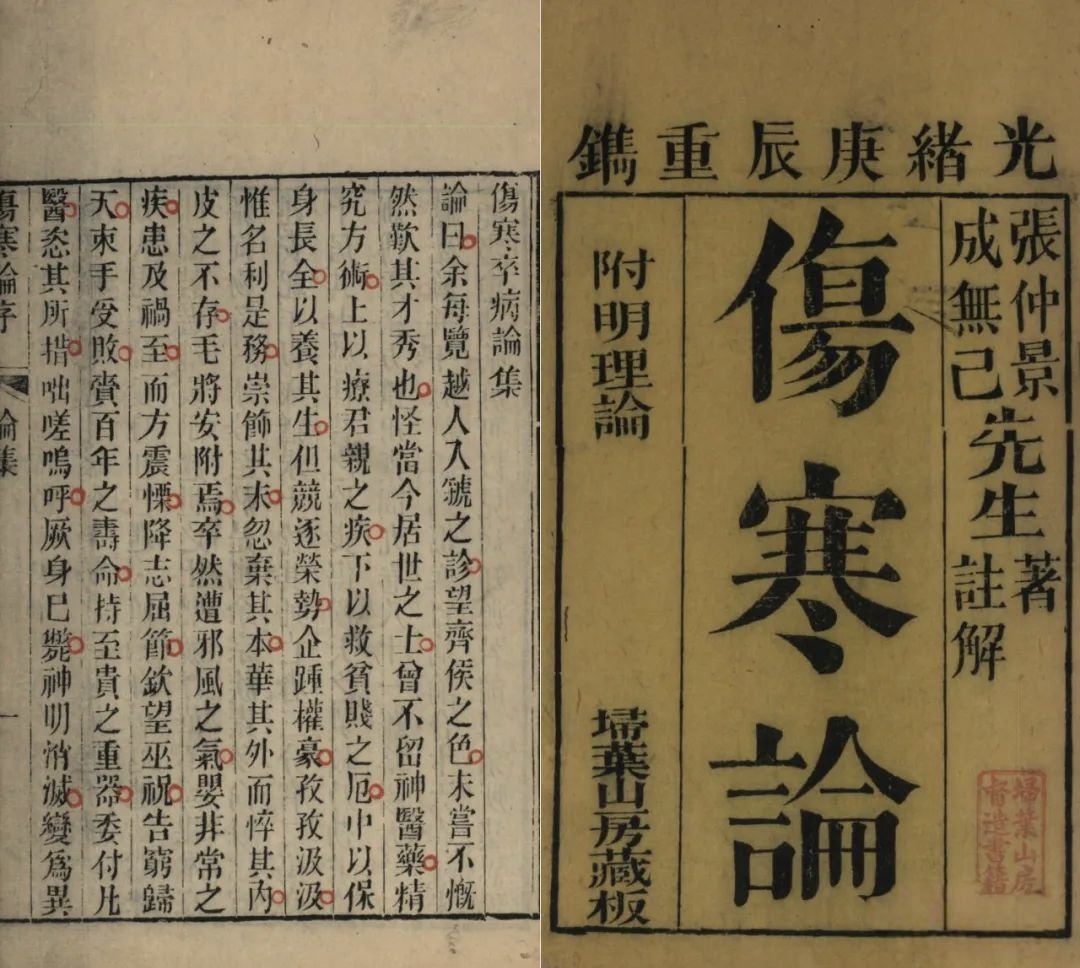 光緒庚辰重鐫
張仲景先生著
成無己註解
傷寒論
附明理論
埽葉山房藏板
掃葉山房
督造書籍
傷寒卒病論集
論曰余每覽越人入虢之診望齊侯之色未嘗不慨
然歎其才秀也怪當今居世之士曾不留神醫藥精
究方術上以療君親之疾下以救貧賤之厄中以保
身長全以養其生但競逐榮勢企踵權豪孜孜汲汲
惟名利是務崇飾其末忽棄其本華其外而悴其內
皮之不存毛將安附焉卒然遭邪風之氣嬰非常之
疾患及禍至而方震慄降志屈節欽望巫祝告窮歸
天束手受敗賷百年之壽命持至貴之重器委付凡
醫恣其所措咄嗟嗚呼厥身已斃神明消滅變爲異
傷寒論序 論集 一